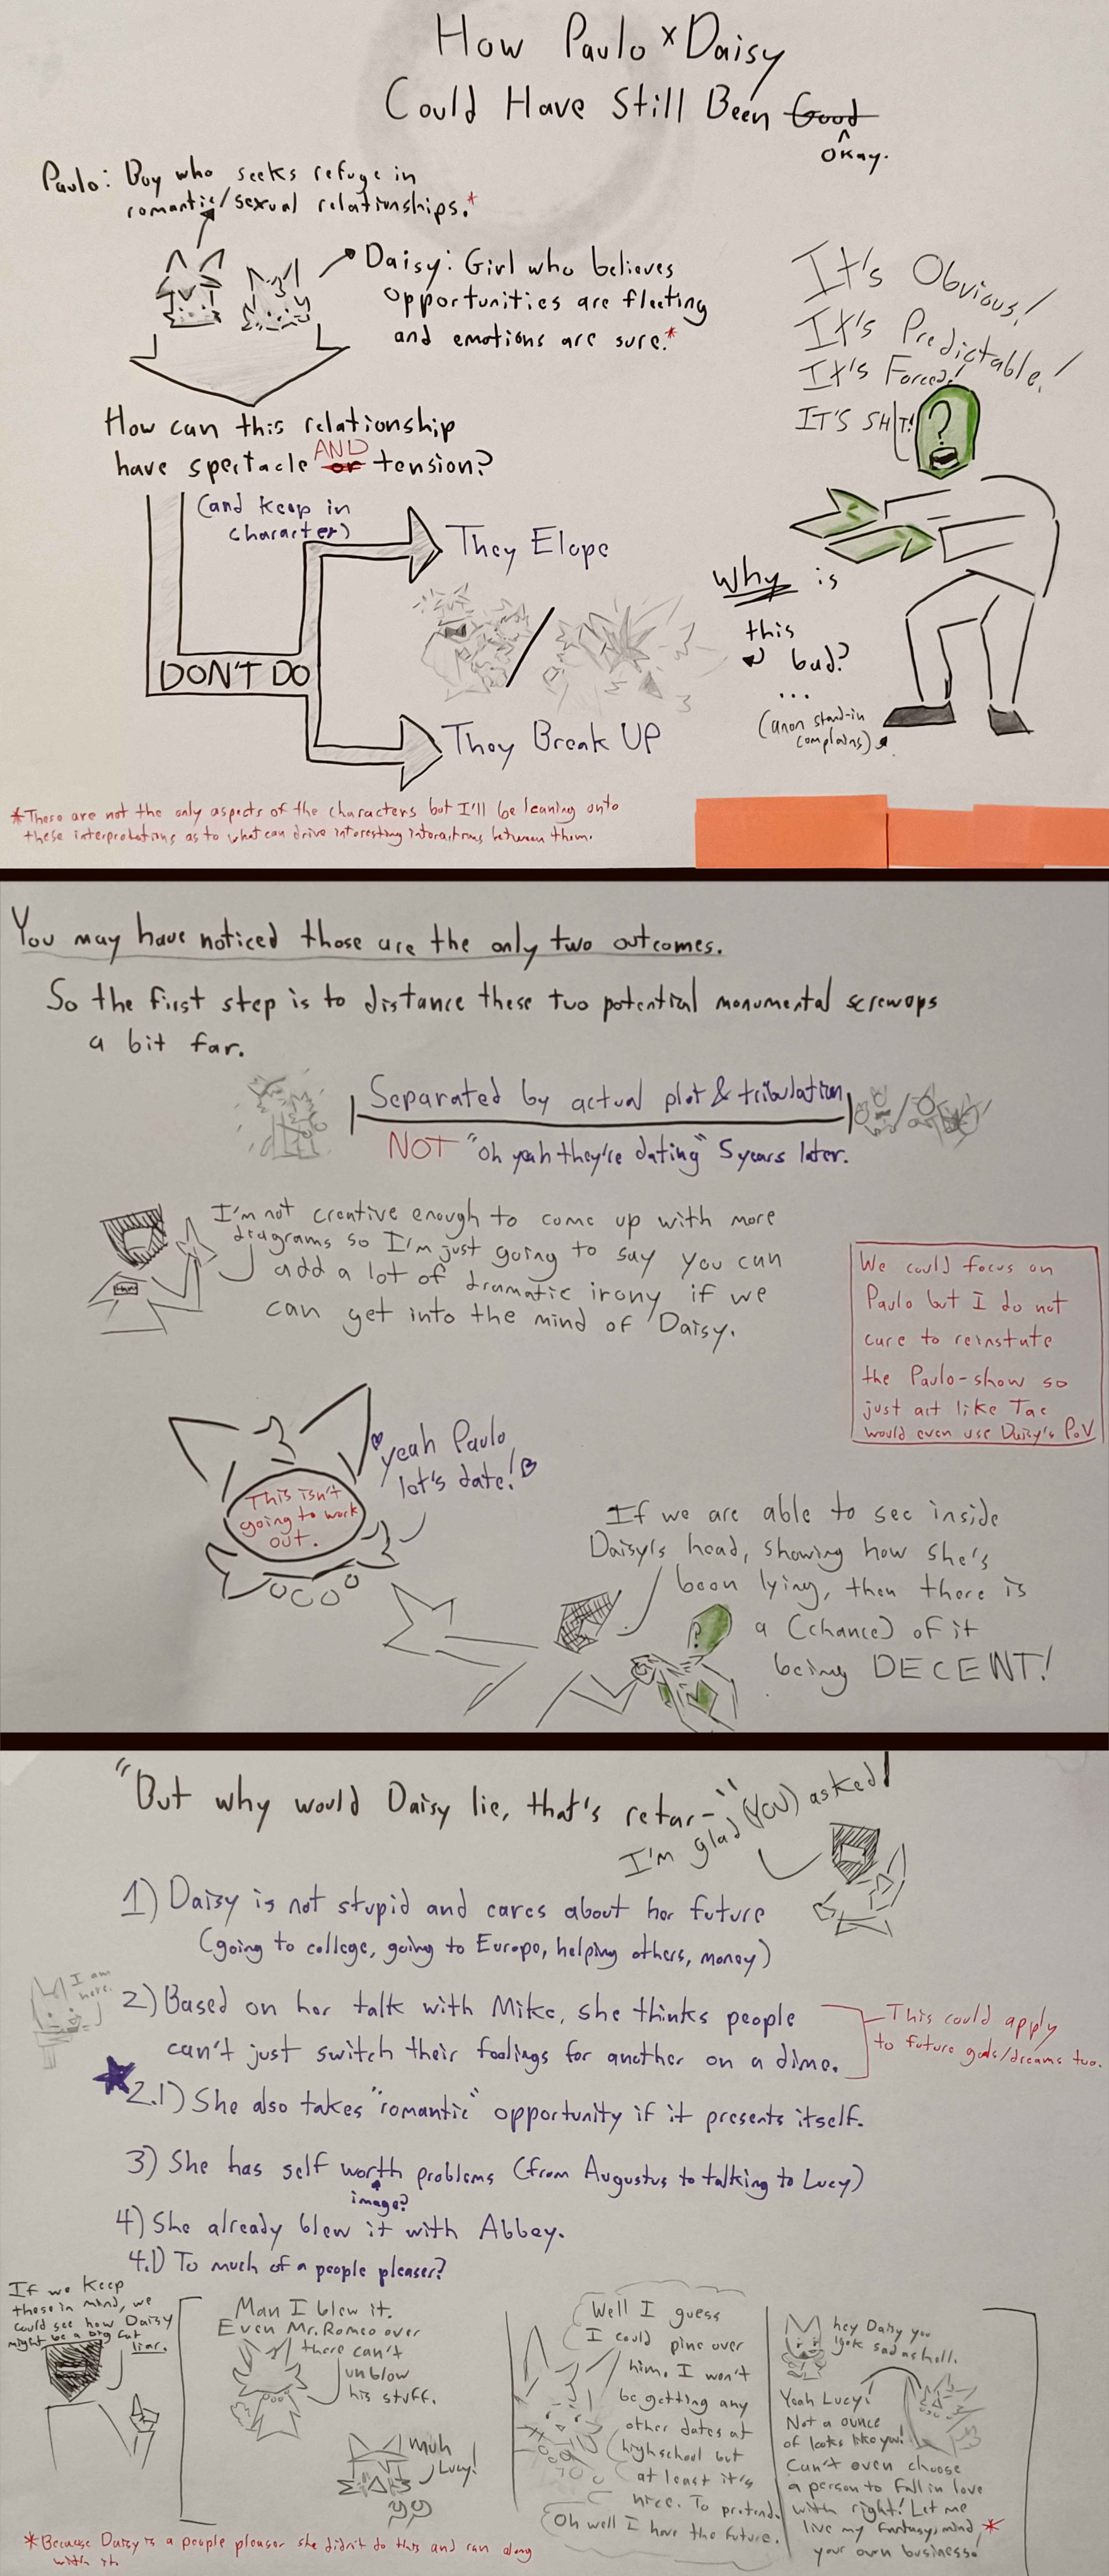 How Paulo x Daisy
Could Have Still Been Good
^
okay.
Paulo: Boy who seeks refuge in
romantic/sexual relationships.*
Daisy: Girl who believes
opportunities are fleeting
and emotions are sure.*
It's Obvious!
It's Predictable!
It's Forced!
IT'S SHIT!
?
How can this relationship
have spectacle or AND tension?
(and keep in
character)
They Elope
DON'T DO
They Break UP
Why is
this
bad?
...
(anon stand-in
complains)
*These are not the only aspects of the characters but I'll be leaning onto
these interpretations as to what can drive interesting interactions between them.
You may have noticed those are the only two outcomes.
So the first step is to distance these two potential monumental screwups
a bit far.
Separated by actual plot & tribulation
NOT "oh yeah they're dating" 5 years later.
I'm not creative enough to come up with more
diagrams so I'm just going to say you can
add a lot of dramatic irony if we
can get into the mind of Daisy.
We could focus on
Paulo but I do not
care to reinstate
the Paulo-show so
just act like Tae
would even use Daisy's PoV
yeah Paulo
let's date!
This isn't
going to work
out.
If we are able to see inside
Daisy's head, showing how she's
been lying, then there is
a (chance) of it
being DECENT!
?
"But why would Daisy lie, that's retar-"
I'm glad (YOU) asked!
1) Daisy is not stupid and cares about her future
(going to college, going to Europe, helping others, money)
I am
here.
2) Based on her talk with Mike, she thinks people
can't just switch their feelings for another on a dime.
This could apply
to future goals/dreams too.
2.1) She also takes "romantic" opportunity if it presents itself.
3) She has self worth problems (from Augustus to talking to Lucy)
image?
4) She already blew it with Abbey.
4.1) To much of a people pleaser?
If we keep
these in mind, we
could see how Daisy
might be a big fat
liar.
Man I blew it.
Even Mr. Romeo over
there can't
unblow
his stuff.
Muh
Lucy!
Well I guess
I could pine over
him. I won't
be getting any
other dates at
highschool but
at least it's
nice. To pretend.
Oh well I have the future.
hey Daisy you
look sad as hell.
Yeah Lucy!
Not a ounce
of looks like you!
Can't even choose
a person to fall in love
with right! Let me
live my fantasy, mind *
your own business!
*Because Daisy is a people pleaser she didn't do this and ran along
with it.